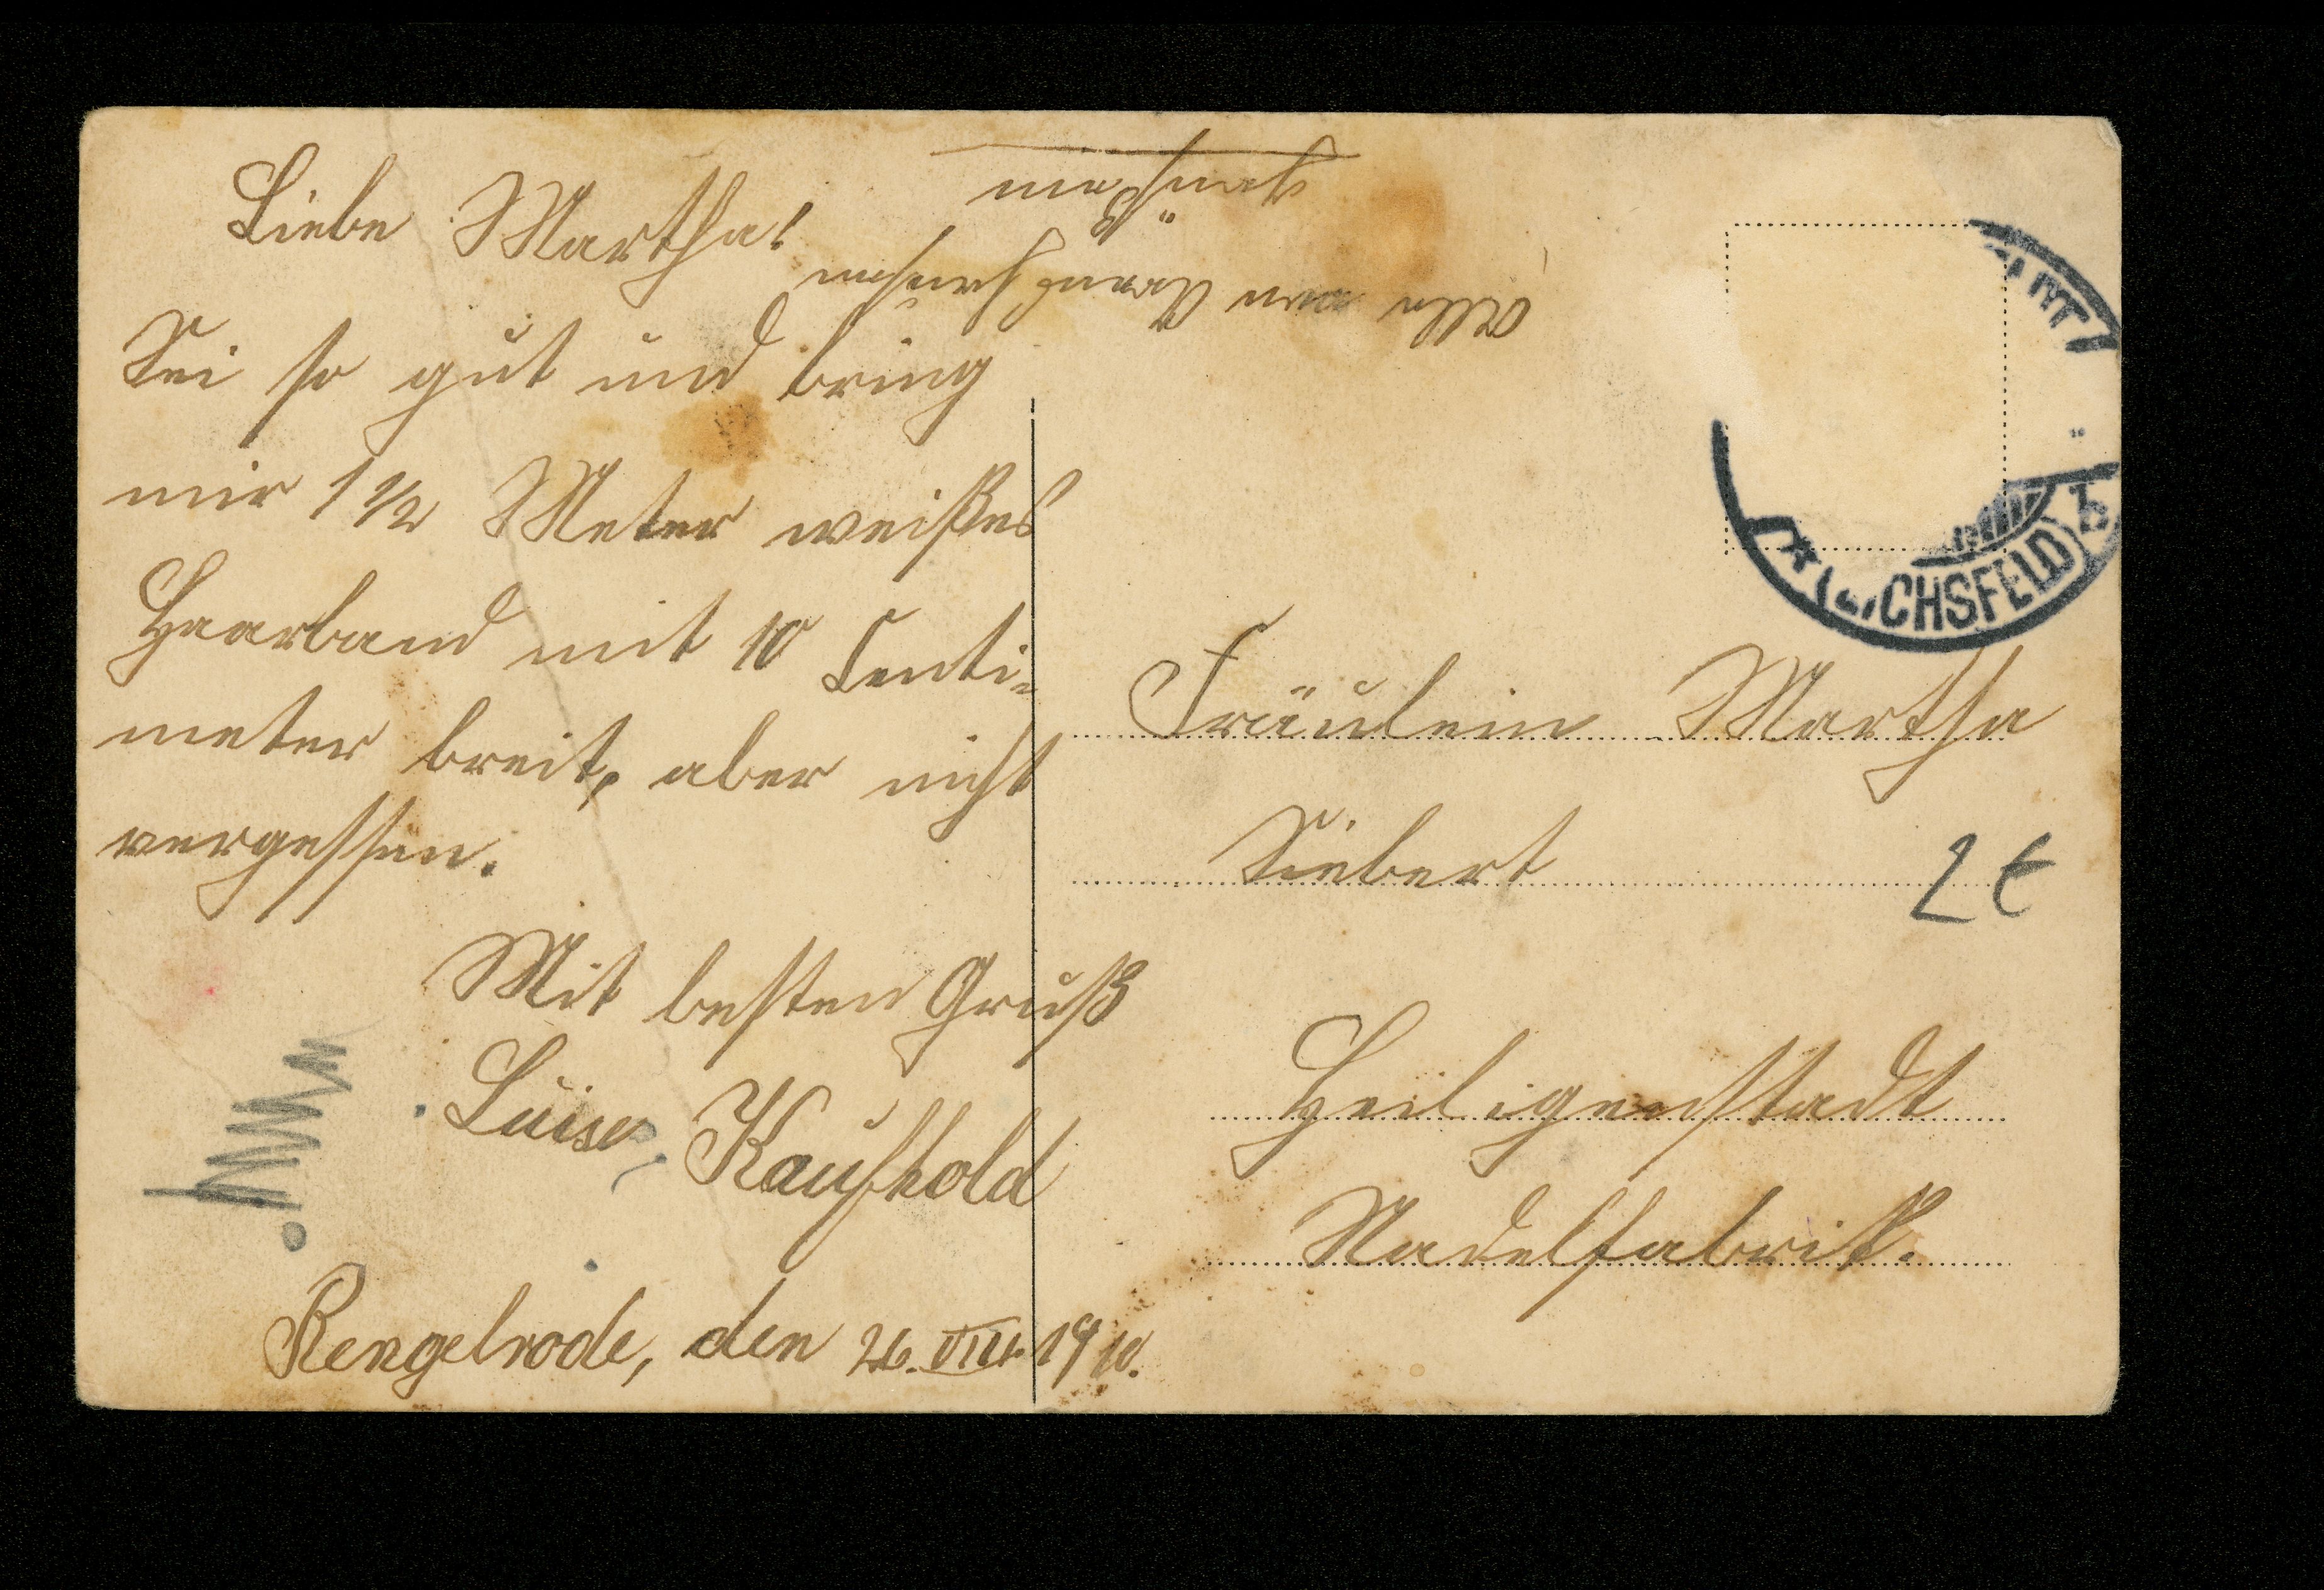 Liebe Martha!
Alle von
Sei so gut und bring
mir 1 1/2 Meter weißes
Haarband mit 10 Centi-
meter breit, aber nicht
vergessen.
Mit besten Gruß
Luise Kaufhold
Rengelrode, den 26. VIII. 1910.
(EICHSFELD) b
Fräulein Martha
Siebert
2 €
Heiligenstadt
Nadelfabrik.